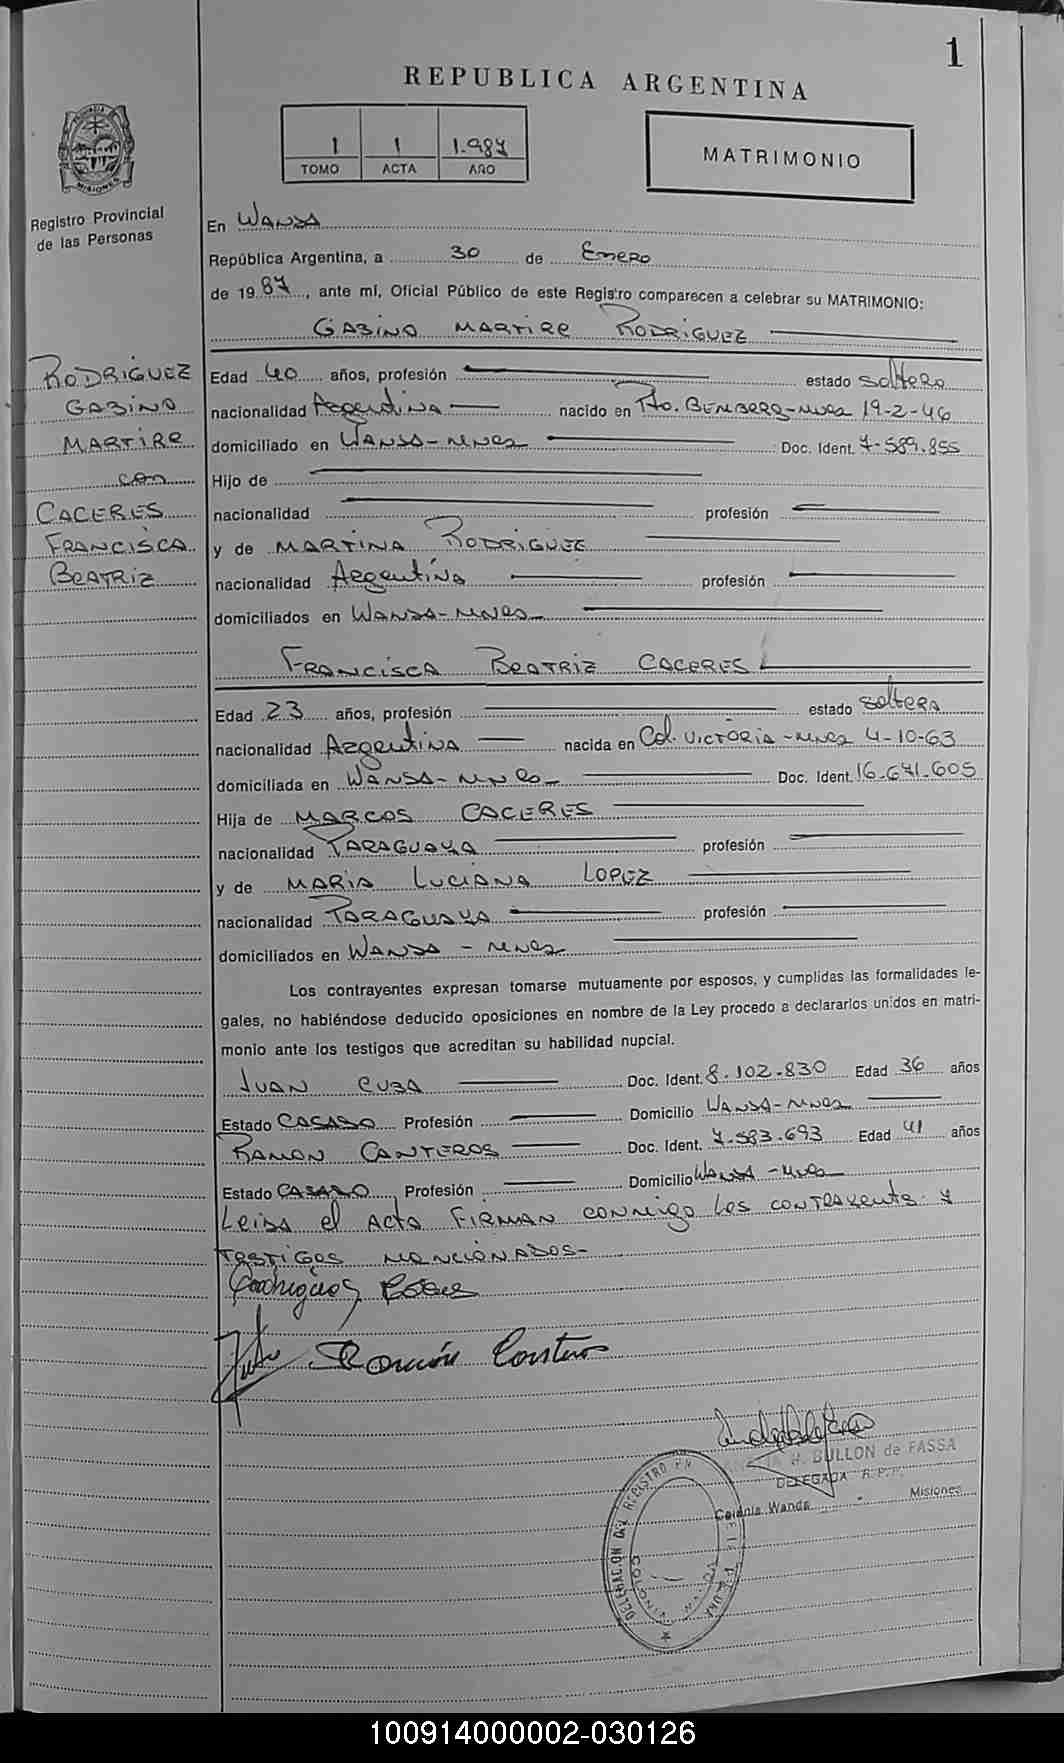 1
REPUBLICA ARGENTINA
1 1 1.987
TOMO ACTA AÑO
MATRIMONIO
PROVINCIA
MISIONES
Registro Provincial
de las Personas
RODRIGUEZ
GABINO
MARTIRE
con
CACERES
FRANCISCA
BEATRIZ
En WANDA
República Argentina, a 30 de Enero
de 1987, ante mí, Oficial Público de este Registro comparecen a celebrar su MATRIMONIO:
GABINO MARTIRE RODRIGUEZ
Edad 40 años, profesión estado soltero
nacionalidad Argentina nacido en Pto. BEMBERG-MNES 19-2-46
domiciliado en WANDA-MNES Doc. Ident. 7-589.855
Hijo de
nacionalidad profesión
y de MARTINA RODRIGUEZ
nacionalidad Argentina profesión
domiciliados en WANDA-MNES
FRANCISCA BEATRIZ CACERES
Edad 23 años, profesión estado soltera
nacionalidad Argentina nacida en Col. VICTORIA-MNES 4-10-63
domiciliada en WANDA-MNES Doc. Ident. 16-641-605
Hija de MARCOS CACERES
nacionalidad PARAGUAYA profesión
y de MARIA LUCIANA LOPEZ
nacionalidad PARAGUAYA profesión
domiciliados en WANDA - MNES
Los contrayentes expresan tomarse mutuamente por esposos, y cumplidas las formalidades le-
gales, no habiéndose deducido oposiciones en nombre de la Ley procedo a declararlos unidos en matri-
monio ante los testigos que acreditan su habilidad nupcial.
JUAN CUBA Doc. Ident. 8.102.830 Edad 36 años
Estado CASADO Profesión Domicilio WANDA-MNES
RAMON CANTEROS Doc. Ident. 7.583.693 Edad 41 años
Estado CASADO Profesión Domicilio WANDA-MNES
LEIDA el ACTA FIRMAN conmigo los contrayentes y
TESTIGOS MENCIONADOS-
Rodriguez
Ramón Canteros
H. BULLON de FASSA
DELEGADA R.P.P.
Colonia Wanda Misiones
DELEGACION DEL REGISTRO
100914000002-030126